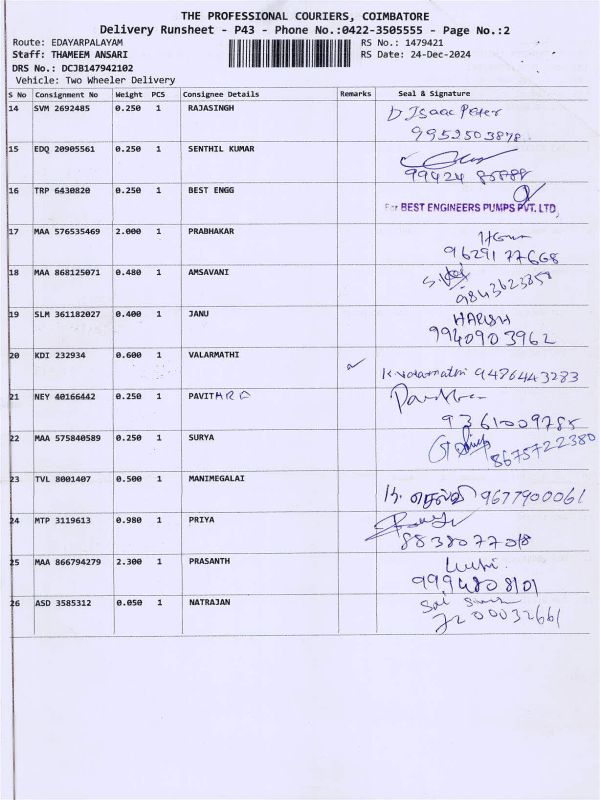 THE PROFESSIONAL COURIERS, COIMBATORE
Delivery Runsheet - P43 - Phone No.:0422-3505555 - Page No.:2
Route: EDAYARPALAYAM RS No.: 1479421
Staff: THAMEEM ANSARI RS Date: 24-Dec-2024
DRS No.: DCJB147942102
Vehicle: Two Wheeler Delivery
S No Consignment No Weight PCS Consignee Details Remarks Seal & Signature
14 SVM 2692485 0.250 1 RAJASINGH D Isaac Peter
9952503878
15 EDQ 20905561 0.250 1 SENTHIL KUMAR
99424
16 TRP 6430820 0.250 1 BEST ENGG
For BEST ENGINEERS PUMPS PVT. LTD.
17 MAA 576535469 2.000 1 PRABHAKAR
9629177668
18 MAA 868125071 0.480 1 AMSAVANI
9843623858
19 SLM 361182027 0.400 1 JANU HARISH
9940903962
20 KDI 232934 0.600 1 VALARMATHI
K. Valarmathi 9476443283
21 NEY 40166442 0.250 1 PAVITHRA
9361009785
22 MAA 575840589 0.250 1 SURYA
8675722380
23 TVL 8001407 0.500 1 MANIMEGALAI
செல்வி 9677900061
24 MTP 3119613 0.980 1 PRIYA
8838077018
25 MAA 866794279 2.300 1 PRASANTH
9994808101
26 ASD 3585312 0.050 1 NATRAJAN Sai
7200032661